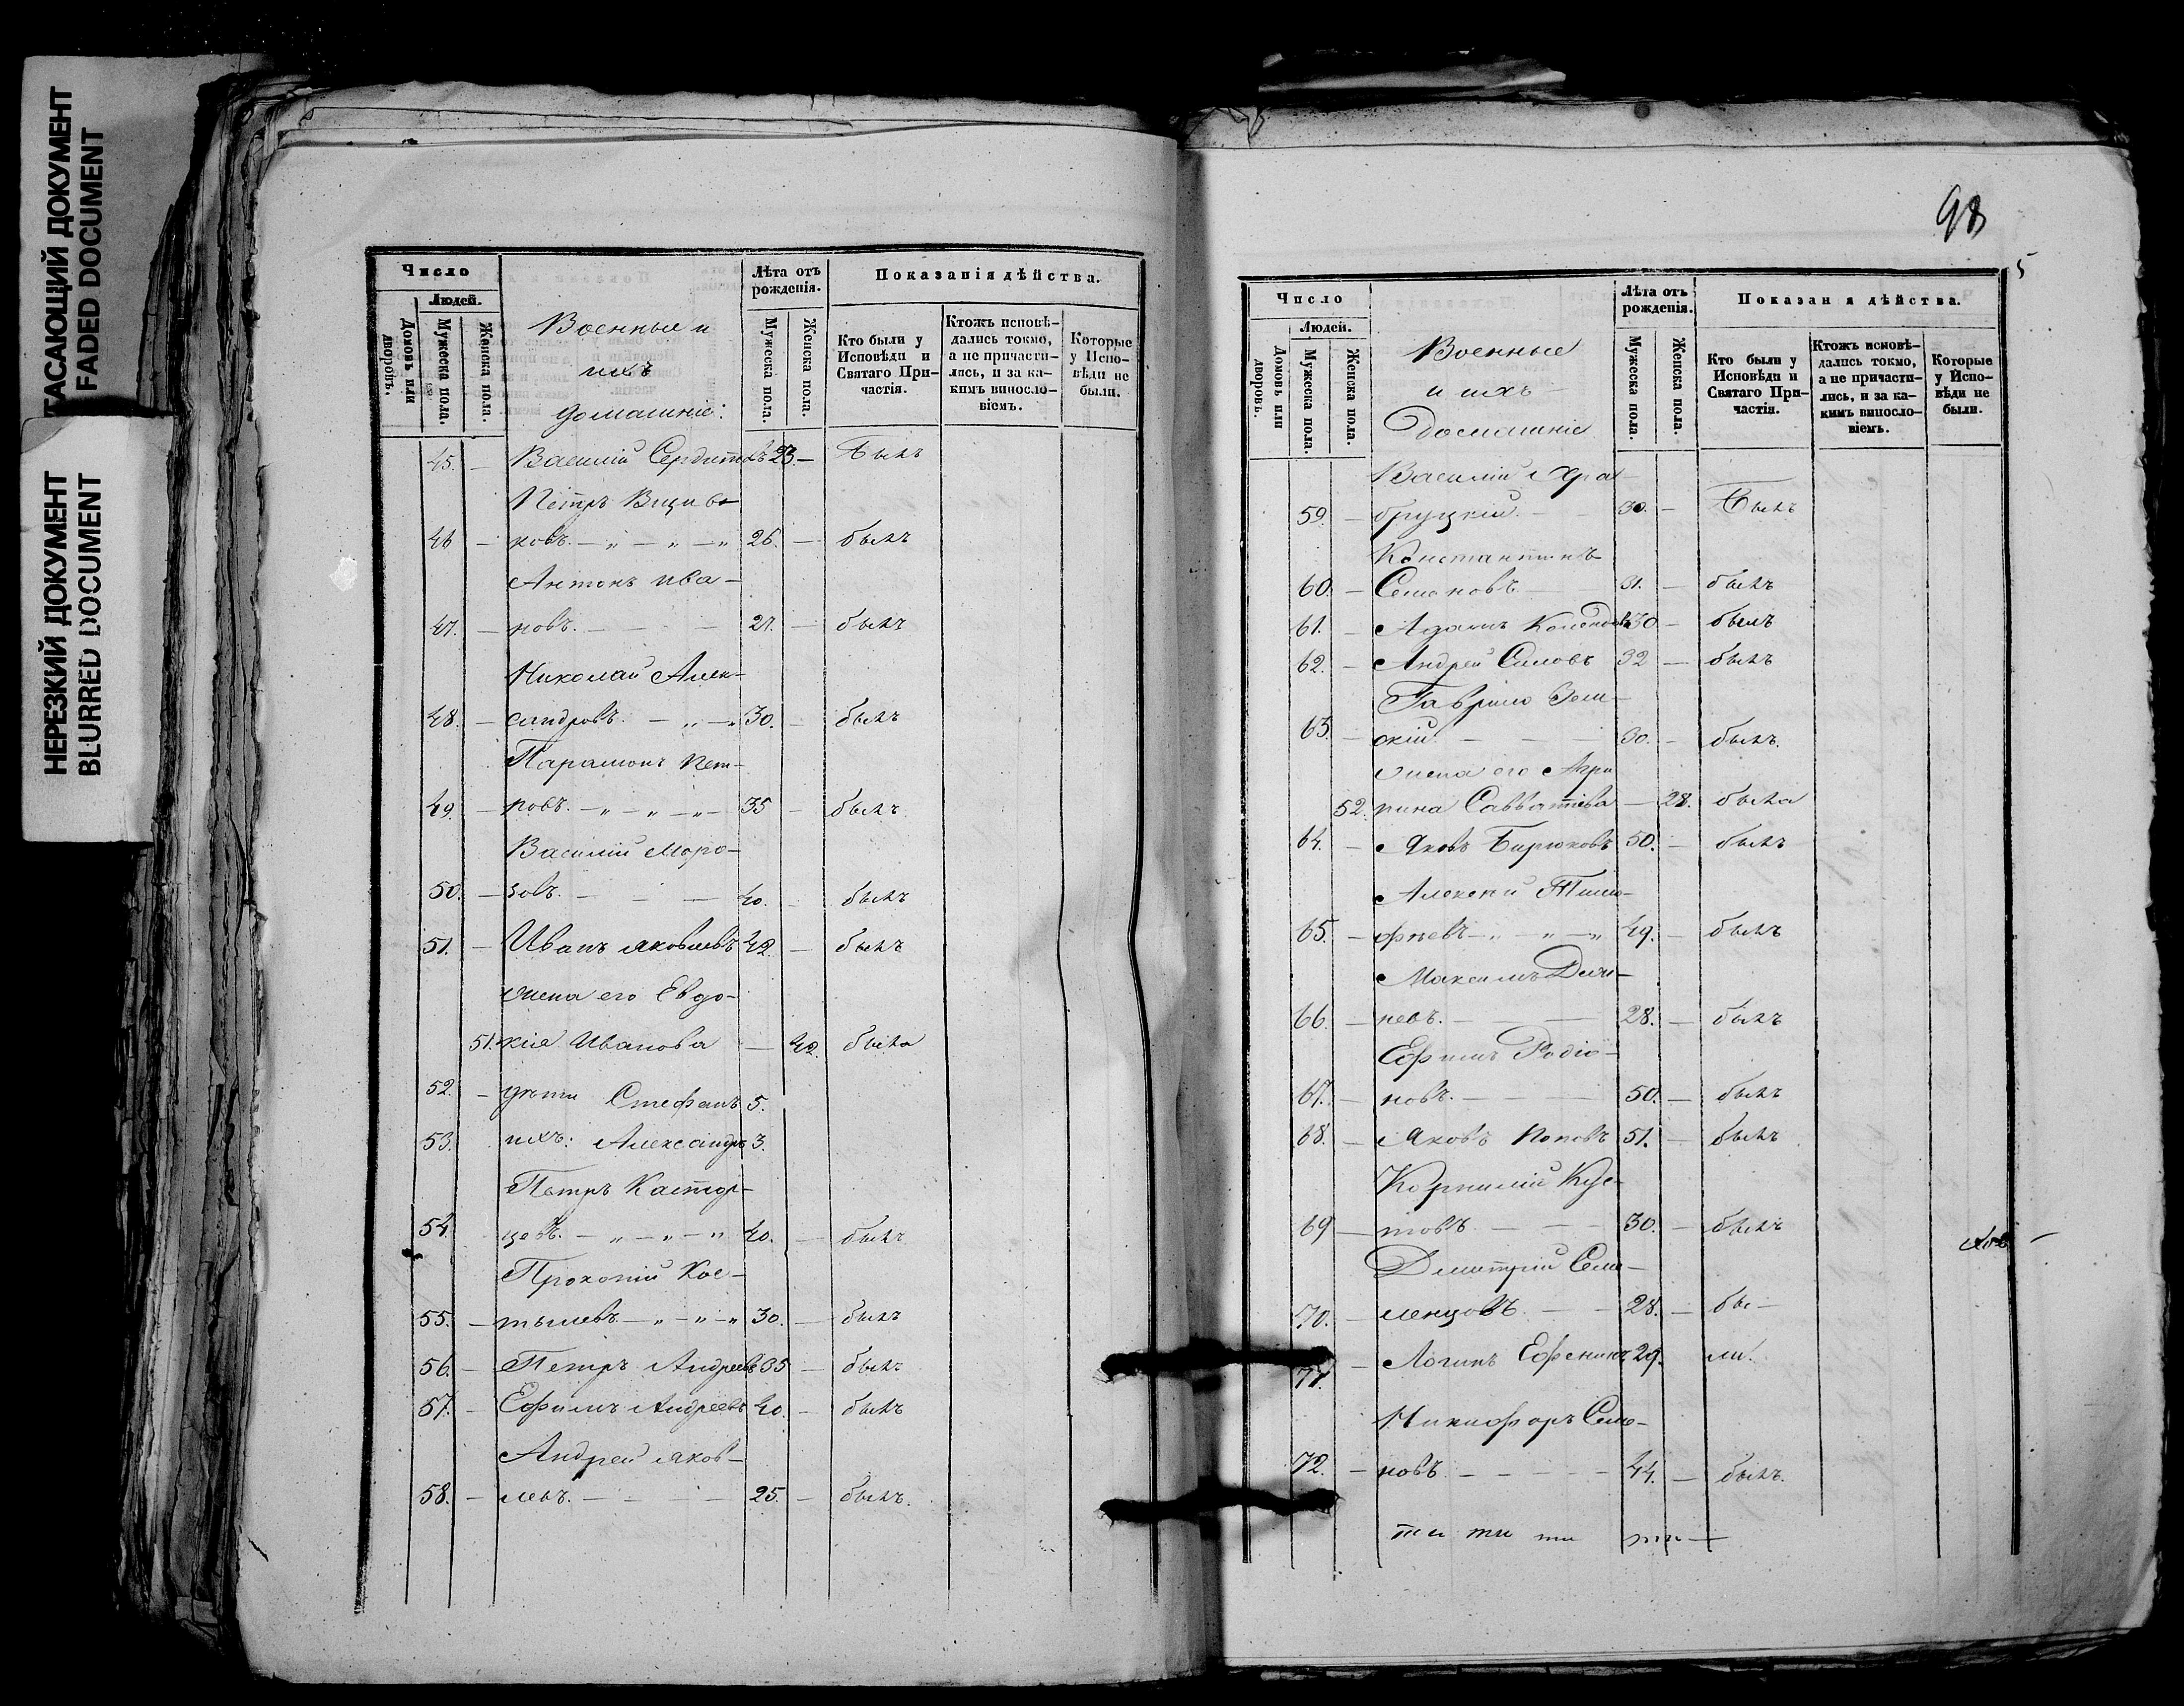 ТАСАЮЩИЙ ДОКУМЕНТ
FADED DOCUMENT
НЕРЕЗКИЙ ДОКУМЕНТ
BLURRED DOCUMENT
Число
Людей.
Домовъ или дворовъ.
Мужеска пола.
Женска пола.
Военные и
ихъ
домашніе:
Лѣта отъ
рожденія.
Мужеска пола.
Женска пола.
Показанія дѣйства.
Кто были у
Исповѣди и
Святаго При-
частія.
Ктожъ исповѣ-
дались токмо,
а не причасти-
лись, и за ка-
кимъ виносло-
віемъ.
Которые
у Испо-
вѣди не
были.
45. — Василій 23. — Былъ
Петръ
46 — ковъ. — „ — „ — „ 26. — былъ
Антонъ Ива-
47. — новъ. — 27. — былъ
Николай Алек-
48. — сандровъ. — „ — „ 30. — былъ
Парамонъ Пет-
49. — ровъ. — „ — „ — „ — 35 — былъ
Василій Моро-
50. — зовъ. — — — 40. — былъ
51. — Иванъ Яковлевъ 42. — былъ
жена его Евдо-
51. кія Иванова — 42. была
52. — дѣти Стефанъ 5.
53. ихъ: Александръ 3.
Петръ Кастор-
54. цевъ. — „ — „ — „ 40. — былъ
Прокопій Кос-
55. — тылевъ — „ — „ — „ 30. — былъ
56. — Петръ Андреевъ 35 — былъ
57. — Ефимъ Андреевъ 40. — былъ
Андрей Яков-
58. — левъ. — — — 25. — былъ.
98
5
Число
Людей.
Домовъ или дворовъ.
Мужеска пола
Женска пола.
Военные
и ихъ
Домашніе
Лѣта отъ
рожденія.
Мужеска пола.
Женска пола.
Показан я дѣйства.
Кто были у
Исповѣди и
Святаго При-
частія.
Ктожъ исповѣ-
дались токмо,
а не причасти-
лись, и за ка-
кимъ виносло-
віемъ.
Которые
у Испо-
вѣди не
были.
Василій Хра-
59. — бруцкій. — 30. — Былъ
Константинъ
60. — Семеновъ — 31. — былъ
61. — Адамъ 30 — былъ
62. — Андрей Симовъ 32 — былъ
Гаврило Зем-
63. — скій. — — — 30. — былъ.
жена его Агри
52. пина Савватѣева — 28. была
64. — Яковъ Бирюковъ 50. — былъ
Алексѣй Тимо-
65. — фѣевъ — „ — „ — „ 49. — былъ
Максимъ
66. — невъ. — — 28. — былъ
Ефимъ Родіо-
67. — новъ. — — — 50. — былъ
68. — Яковъ Поповъ 51. — былъ
Корнилій Кус-
69 — товъ. — — — 30. — былъ
Дмитрій Сем-
70. — ленцовъ — — 28. — бы-
71. — Логинъ 29. ли.
Никифоръ Семе-
72. — новъ. — — — 44. — былъ.
ти ти ти ти —